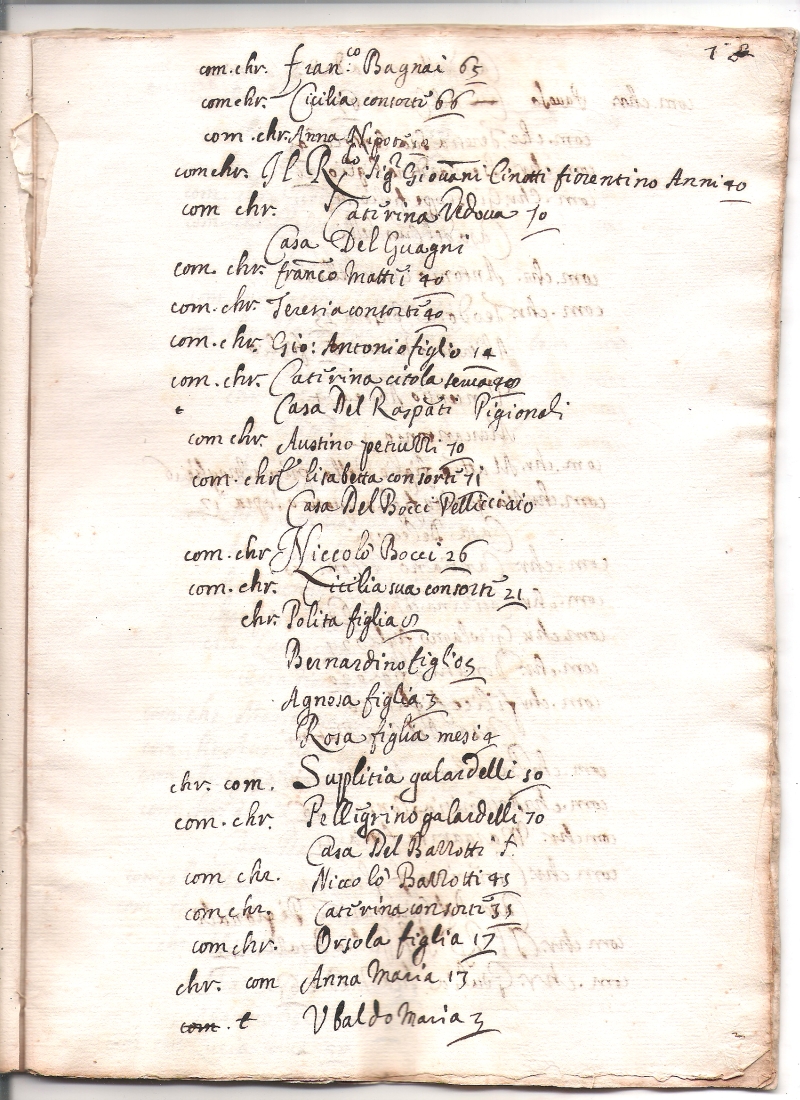 18
com. chr. Fran.co Bagnai 65
com chr. Cicilia consorte 66
com. chr. Anna Nipote
com chr. Il R.do Sig.r Giovani Cinotti fiorentino Anni 40
com chr. Caterina Vedova 70
Casa Del Guagni
com. chr. Franco Mattei 40
com. chr. Teresia consorte 40
com. chr. Gio: Antonio figlio 14
com. chr. Caterina citola
t Casa Del Raspati Pigionali
com chr. Austino petrelli 70
com. chr. Elisabetta consorte 71
Casa Del Bocci Pellicciaio
com. chr Niccolò Bocci 26
com. chr. Cicilia sua consorte 21
chr. Polita figlia 8
Bernardino figlio 5
Agnesa figlia 3
Rosa figlia mesi 4
chr. com. Suplitia galardelli 50
com. chr. Pellegrino galardelli 70
Casa Del Bazzotti t.
com chr. Niccolò Bazzotti 45
com chr. Caterina consorte 35
com chr. Orsola figlia 17
chr. com Anna Maria 13
com. t Ubaldo Maria 3